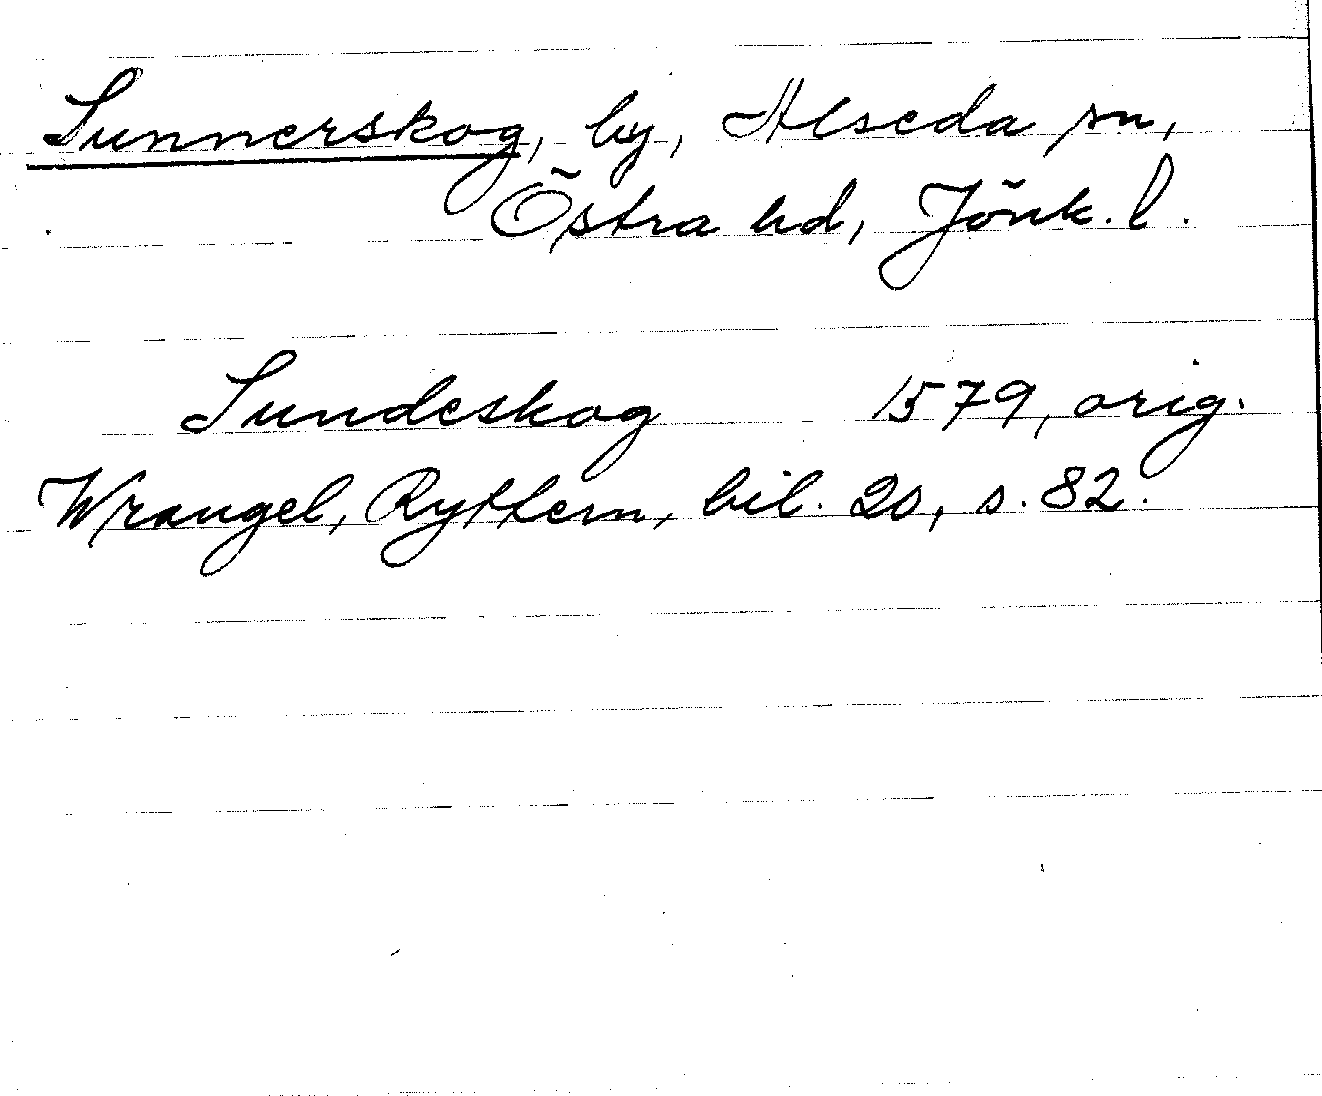 Sunnerskog, by, Alseda sn,
Östra hd, Jönk. l.
Sundeskog 1579, orig.
Wrangel, Ryttern, bil. 20, s. 82.